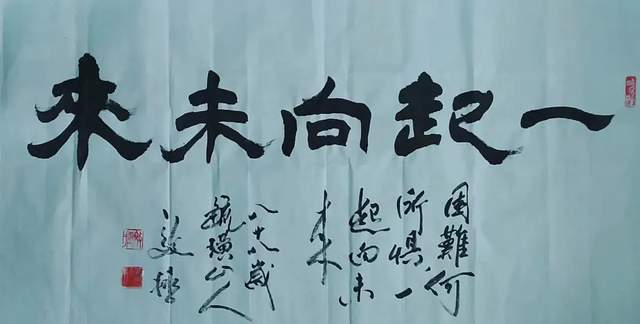 一起向未來
困難何
所惧，一
起向未
来
八十八歲
毓璜山人